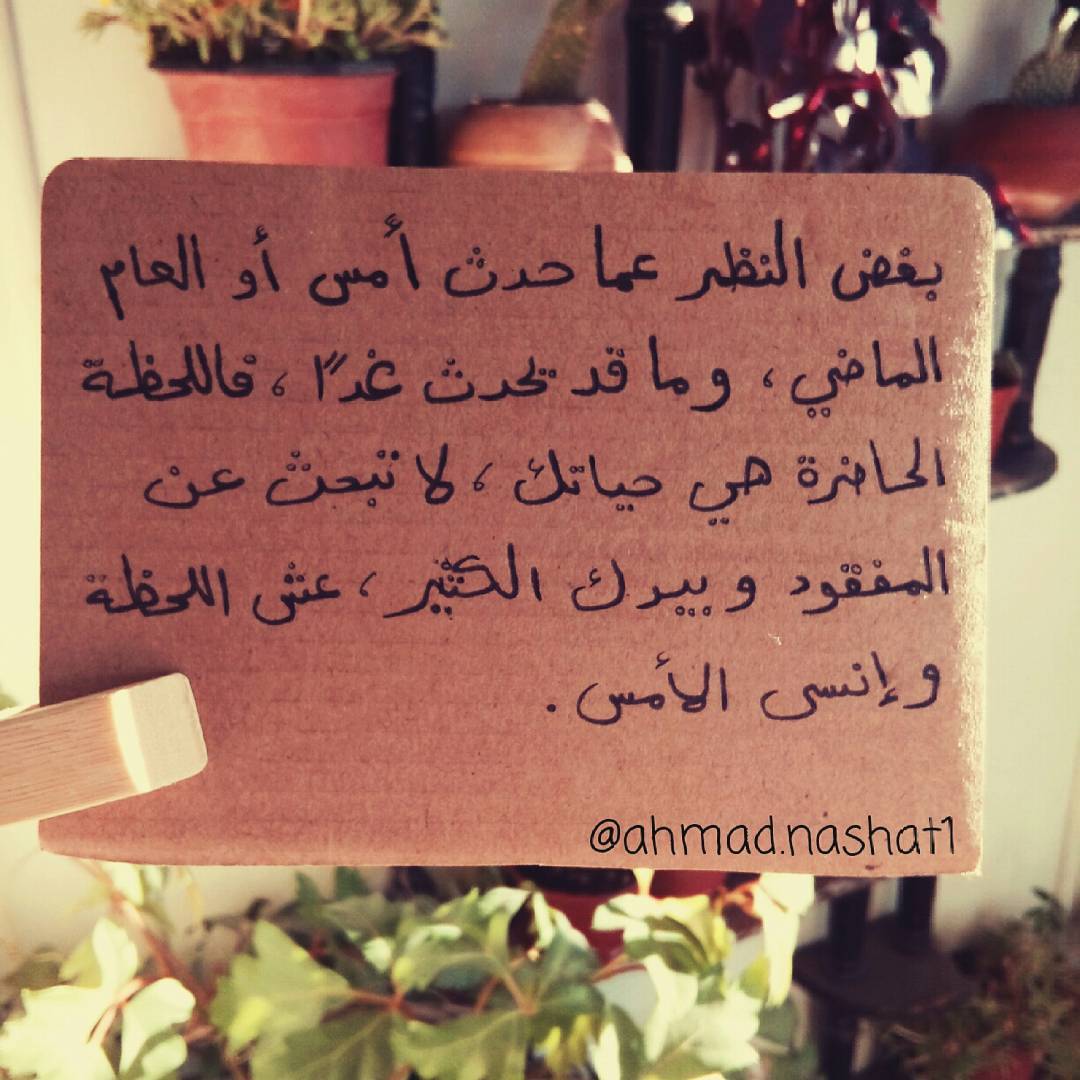 بغض النظر عما حدث أمس أو العام
الماضي ، وما قد يحدث غدًا ، فاللحظة
الحاضرة هي حياتك ، لا تبحث عن
المفقود وبيدك الكثير ، عش اللحظة
وإنسى الأمس .
@ahmad.nashat1